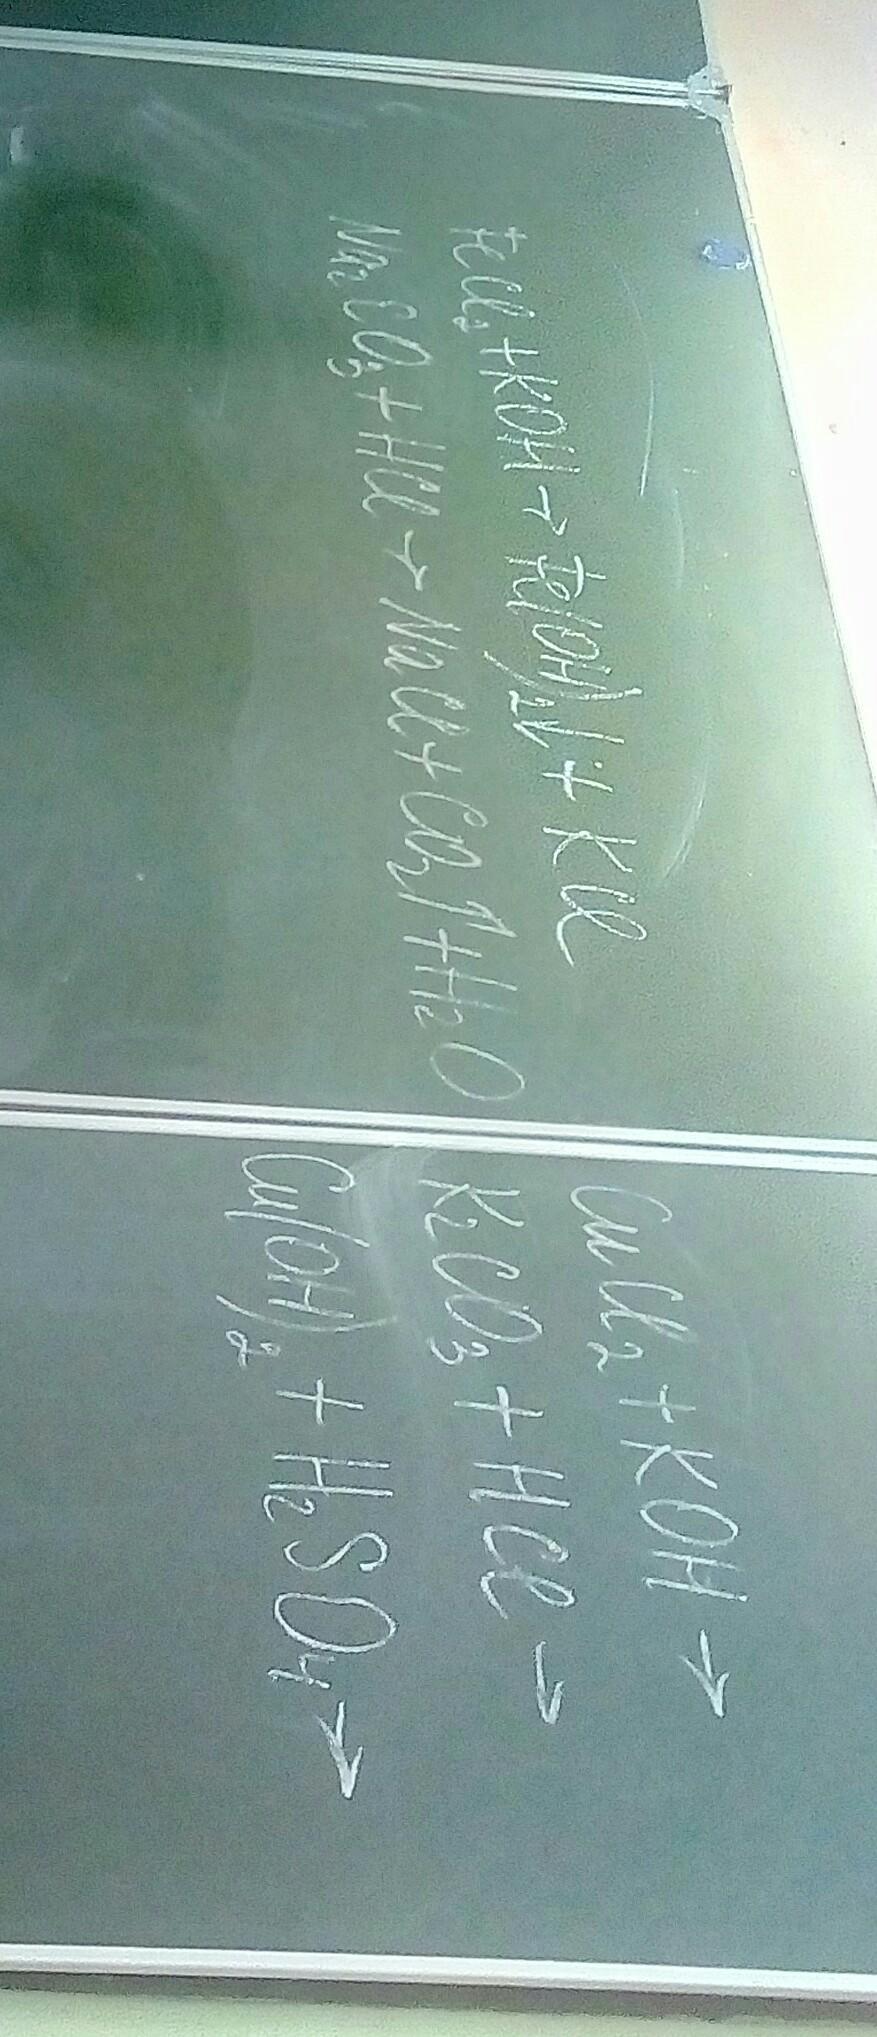 FeCl₂ + KOH → Fe(OH)₂↓ + KCl
Na₂CO₃ + HCl → NaCl + CO₂↑ + H₂O
CuCl₂ + KOH →
K₂CO₃ + HCl →
Cu(OH)₂ + H₂SO₄ →